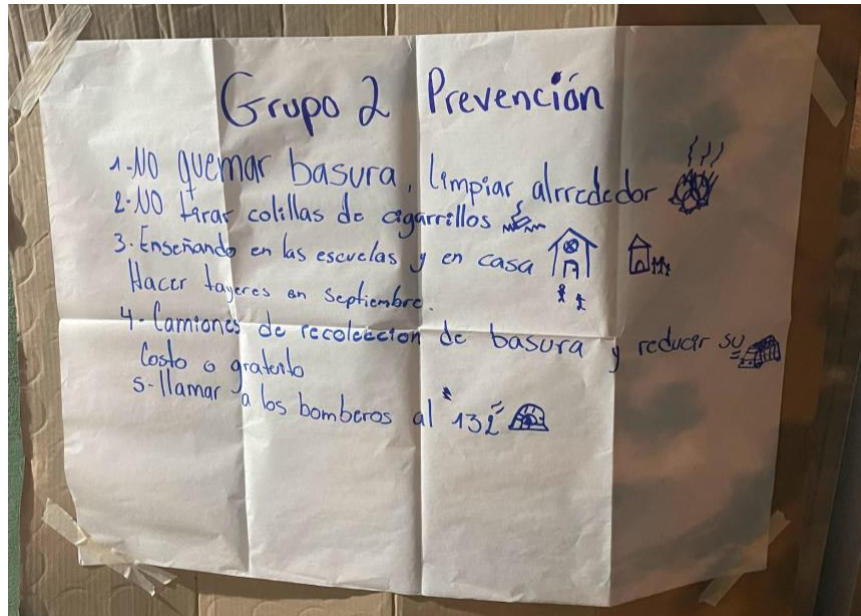 Grupo 2 Prevención
1-NO quemar basura, limpiar alrrededor
2-NO tirar colillas de cigarrillos
3-Enseñando en las escuelas y en casa
Hacer tayeres en Septiembre.
4-Camiones de recolección de basura y reducir su
Costo o gratuito
5-llamar a los bomberos al "132"